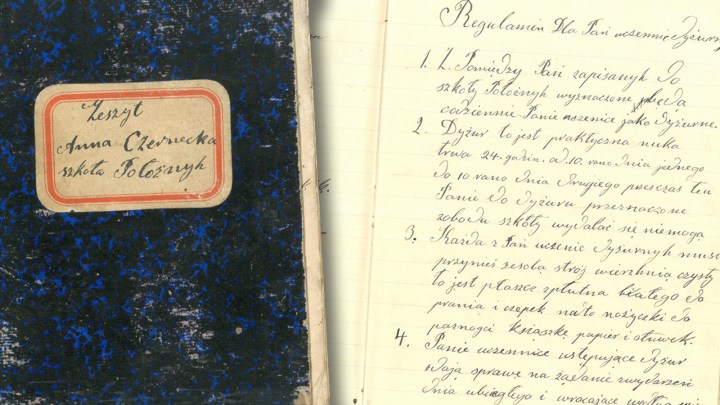 Zeszyt
Anna Czernecka
szkoła Położnyh
Regulamin Dla Pań uczennic Dyżurny
1. Z Pomiędzy Pań zapisanyh do
szkoły Położnyh wyznaczone będą
codziennie Panie uczenice jako dyżurne.
2. Dyżur to jest praktyczna nuka
trwa 24. godzin. od 10. rano dnia jednego
do 10 rano dnia drugiego poczas ten
Panie do dyżuru przeznaczone
zobodu szkoły wydalać się niemogą
3. Każda z Pań uczenic dyżurnyh musi
przynieś zesobą strój wierzhnią czysty
to jest płaszcz zpłutna białego do
prania i czepek nato nożyczki do
paznogci książkę papier i ołuwek.
4. Panie uczennice ustępujące dyżur
zdają sprawę na żądanie zwydarzeń
dnia ubiegłego i wracające